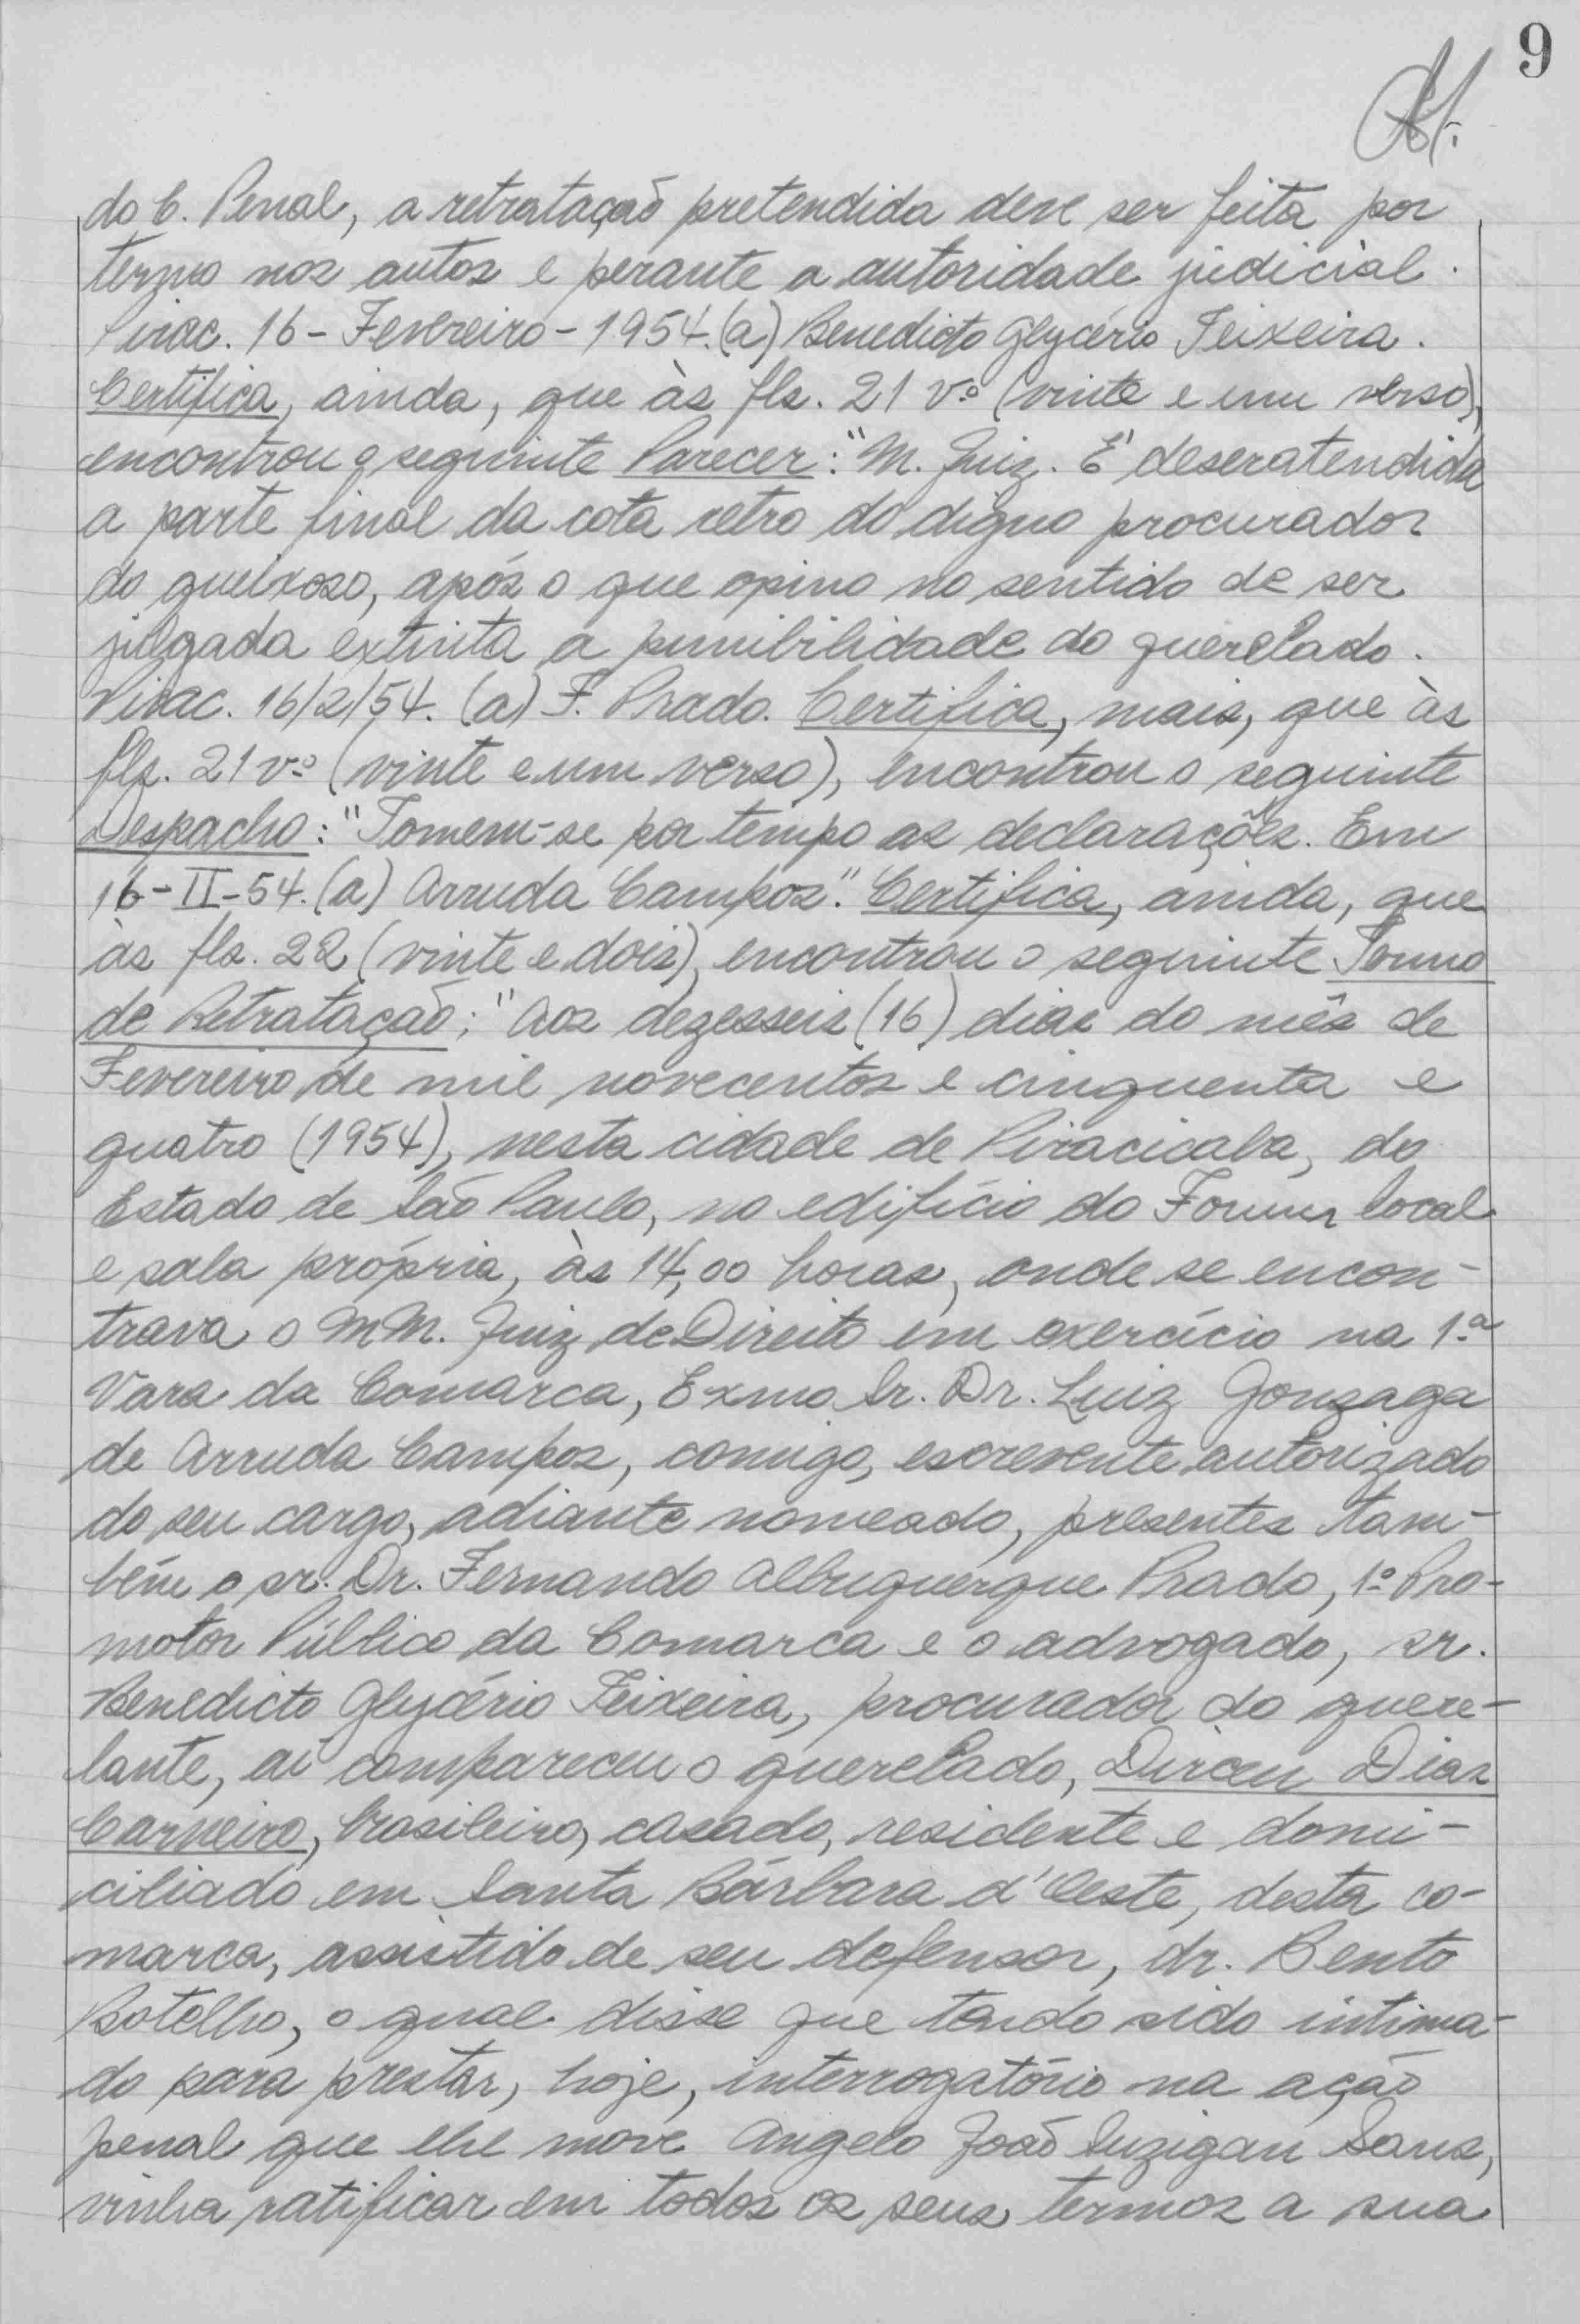 9
do C. Penal, a retratação pretendida deve ser feita por
termo nos autos e perante a autoridade judicial.
Pirac. 16 - Fevereiro - 1954. (a) Benedicto Glycério Teixeira.
Certifica, ainda, que às fls. 21 vº (vinte e um verso),
encontrou o seguinte Parecer: "M. Juiz. É de ser atendida
a parte final da cota retro do digno procurador
do queixoso, após o que opino no sentido de ser
julgada extinta a punibilidade do querelado.
Pirac. 16/2/54. (a) F. Prado. Certifica, mais, que às
fls. 21 vº (vinte e um verso), encontrou o seguinte
Despacho: "Tomem-se por tempo as declarações. Em
16-II-54. (a) Arruda Campos". Certifica, ainda, que
às fls. 22 (vinte e dois), encontrou o seguinte Termo
de Retratação: "Aos dezesseis (16) dias do mês de
Fevereiro de mil novecentos e cinquenta e
quatro (1954), nesta cidade de Piracicaba, do
Estado de São Paulo, no edifício do Forum local
e sala própria, às 14,00 horas, onde se encon-
trava o MM. Juiz de Direito em exercício na 1ª
Vara da Comarca, Exmo Sr. Dr. Luiz Gonzaga
de Arruda Campos, comigo, escrevente autorizado
do seu cargo, adiante nomeado, presentes tam-
bém o sr. Dr. Fernando Albuquerque Prado, 1º Pro-
motor Público da Comarca e o advogado, sr.
Benedicto Glycério Teixeira, procurador do quere-
lante, aí compareceu o querelado, Dirceu Dias
Carneiro, brasileiro, casado, residente e domi-
ciliado em Santa Bárbara d'Oeste, desta co-
marca, assistido de seu defensor, dr. Bento
Botelho, o qual disse que tendo sido intima-
do para prestar, hoje, interrogatório na ação
penal que lhe move Angelo João Luzigan Sans,
vinha ratificar em todos os seus termos a sua